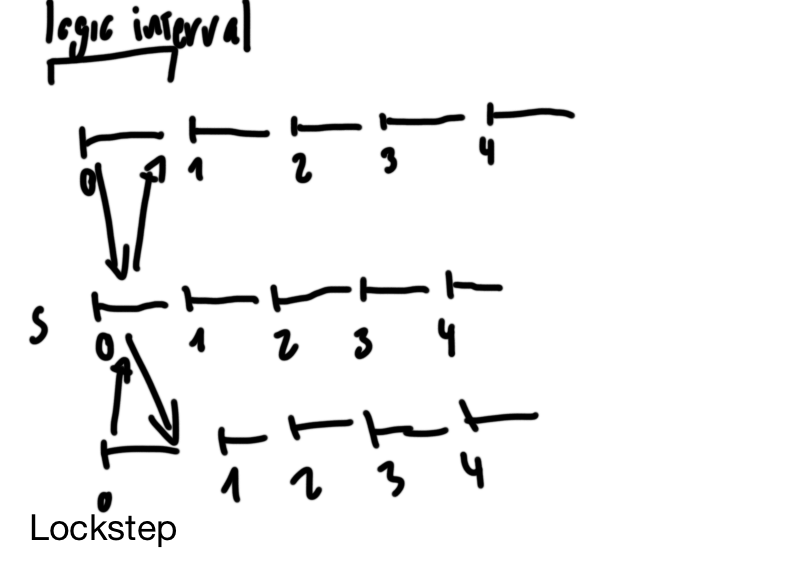 logic interval
0 1 2 3 4
S 0 1 2 3 4
0 1 2 3 4
Lockstep